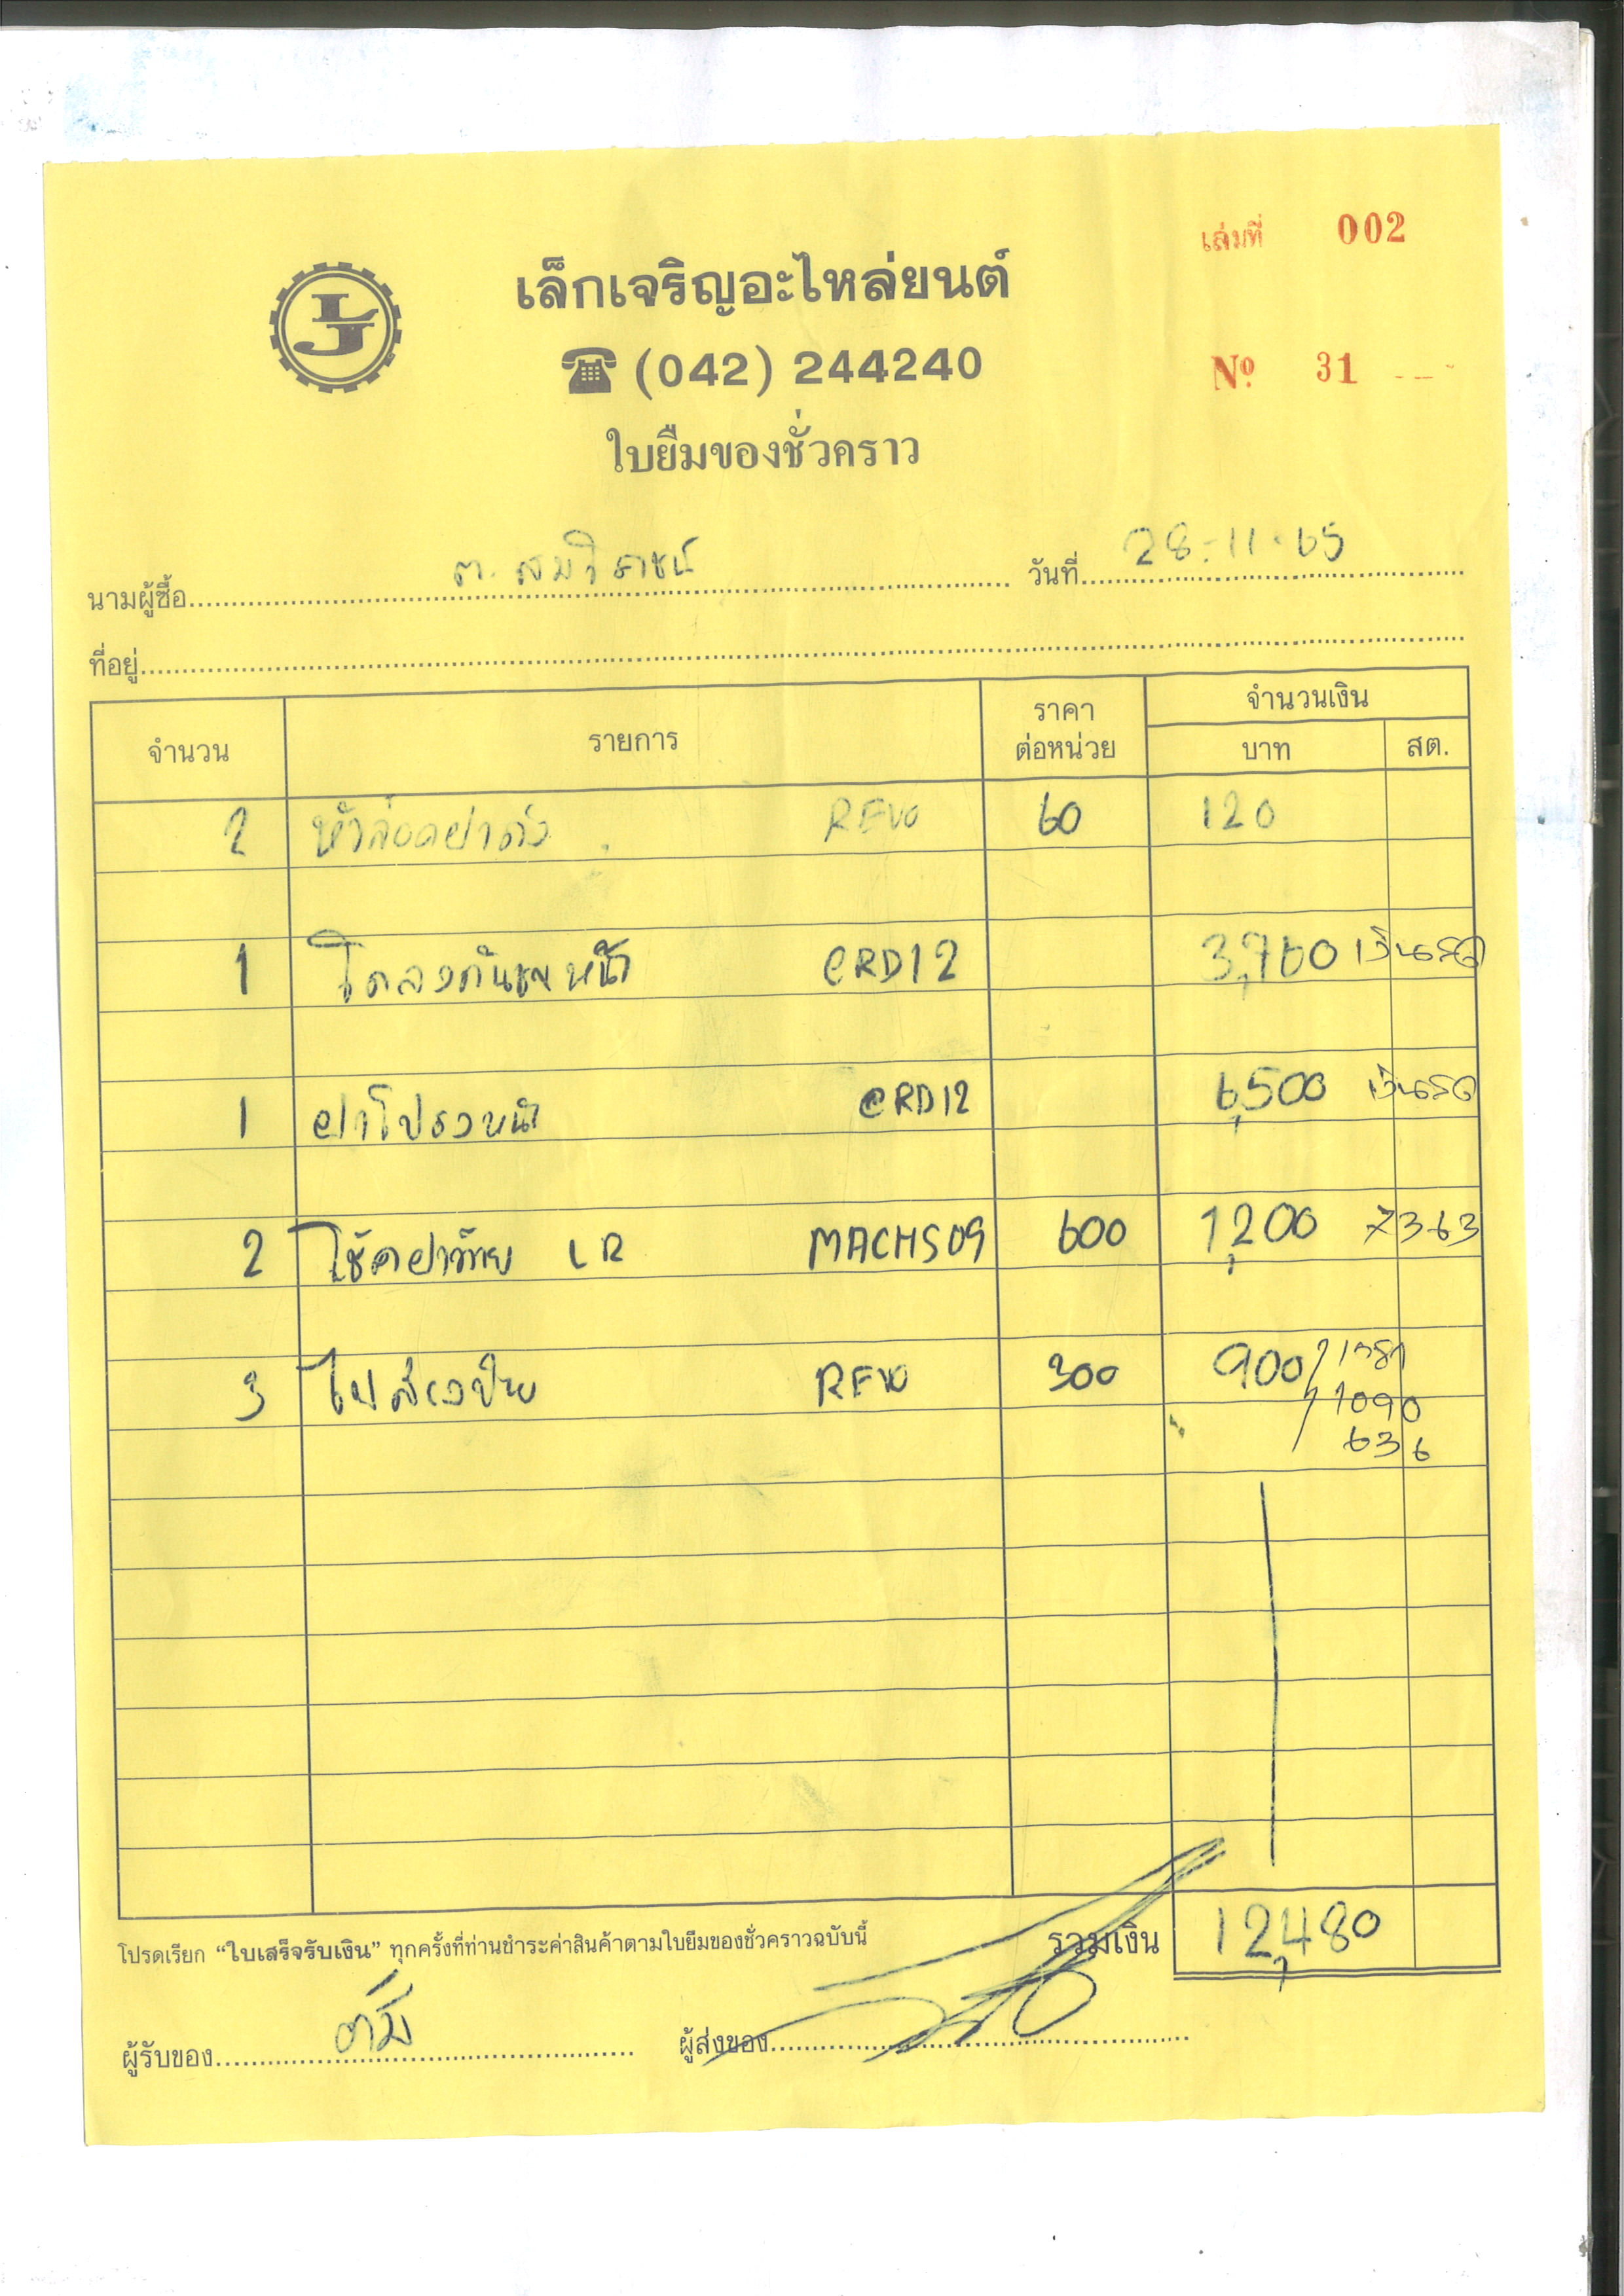 เล่มที่ 002
LJ
เล็กเจริญอะไหล่ยนต์
☎ (042) 244240
Nº 31
ใบยืมของชั่วคราว
นามผู้ซื้อ วันที่ 28-11-65
ที่อยู่
จำนวน รายการ ราคาต่อหน่วย จำนวนเงิน
บาท สต.
2 REVO 60 120
1 โครงกันชนหน้า CRD12 3,760 เงินสด
1 ฝาโปรงหน้า CRD12 6,500 เงินสด
2 โช๊คฝาท้าย LR MACHS09 600 1,200 7363
3 REVO 300 900
1090
636
โปรดเรียก “ใบเสร็จรับเงิน” ทุกครั้งที่ท่านชำระค่าสินค้าตามใบยืมของชั่วคราวฉบับนี้ รวมเงิน 12,480
ผู้รับของ ผู้ส่งของ